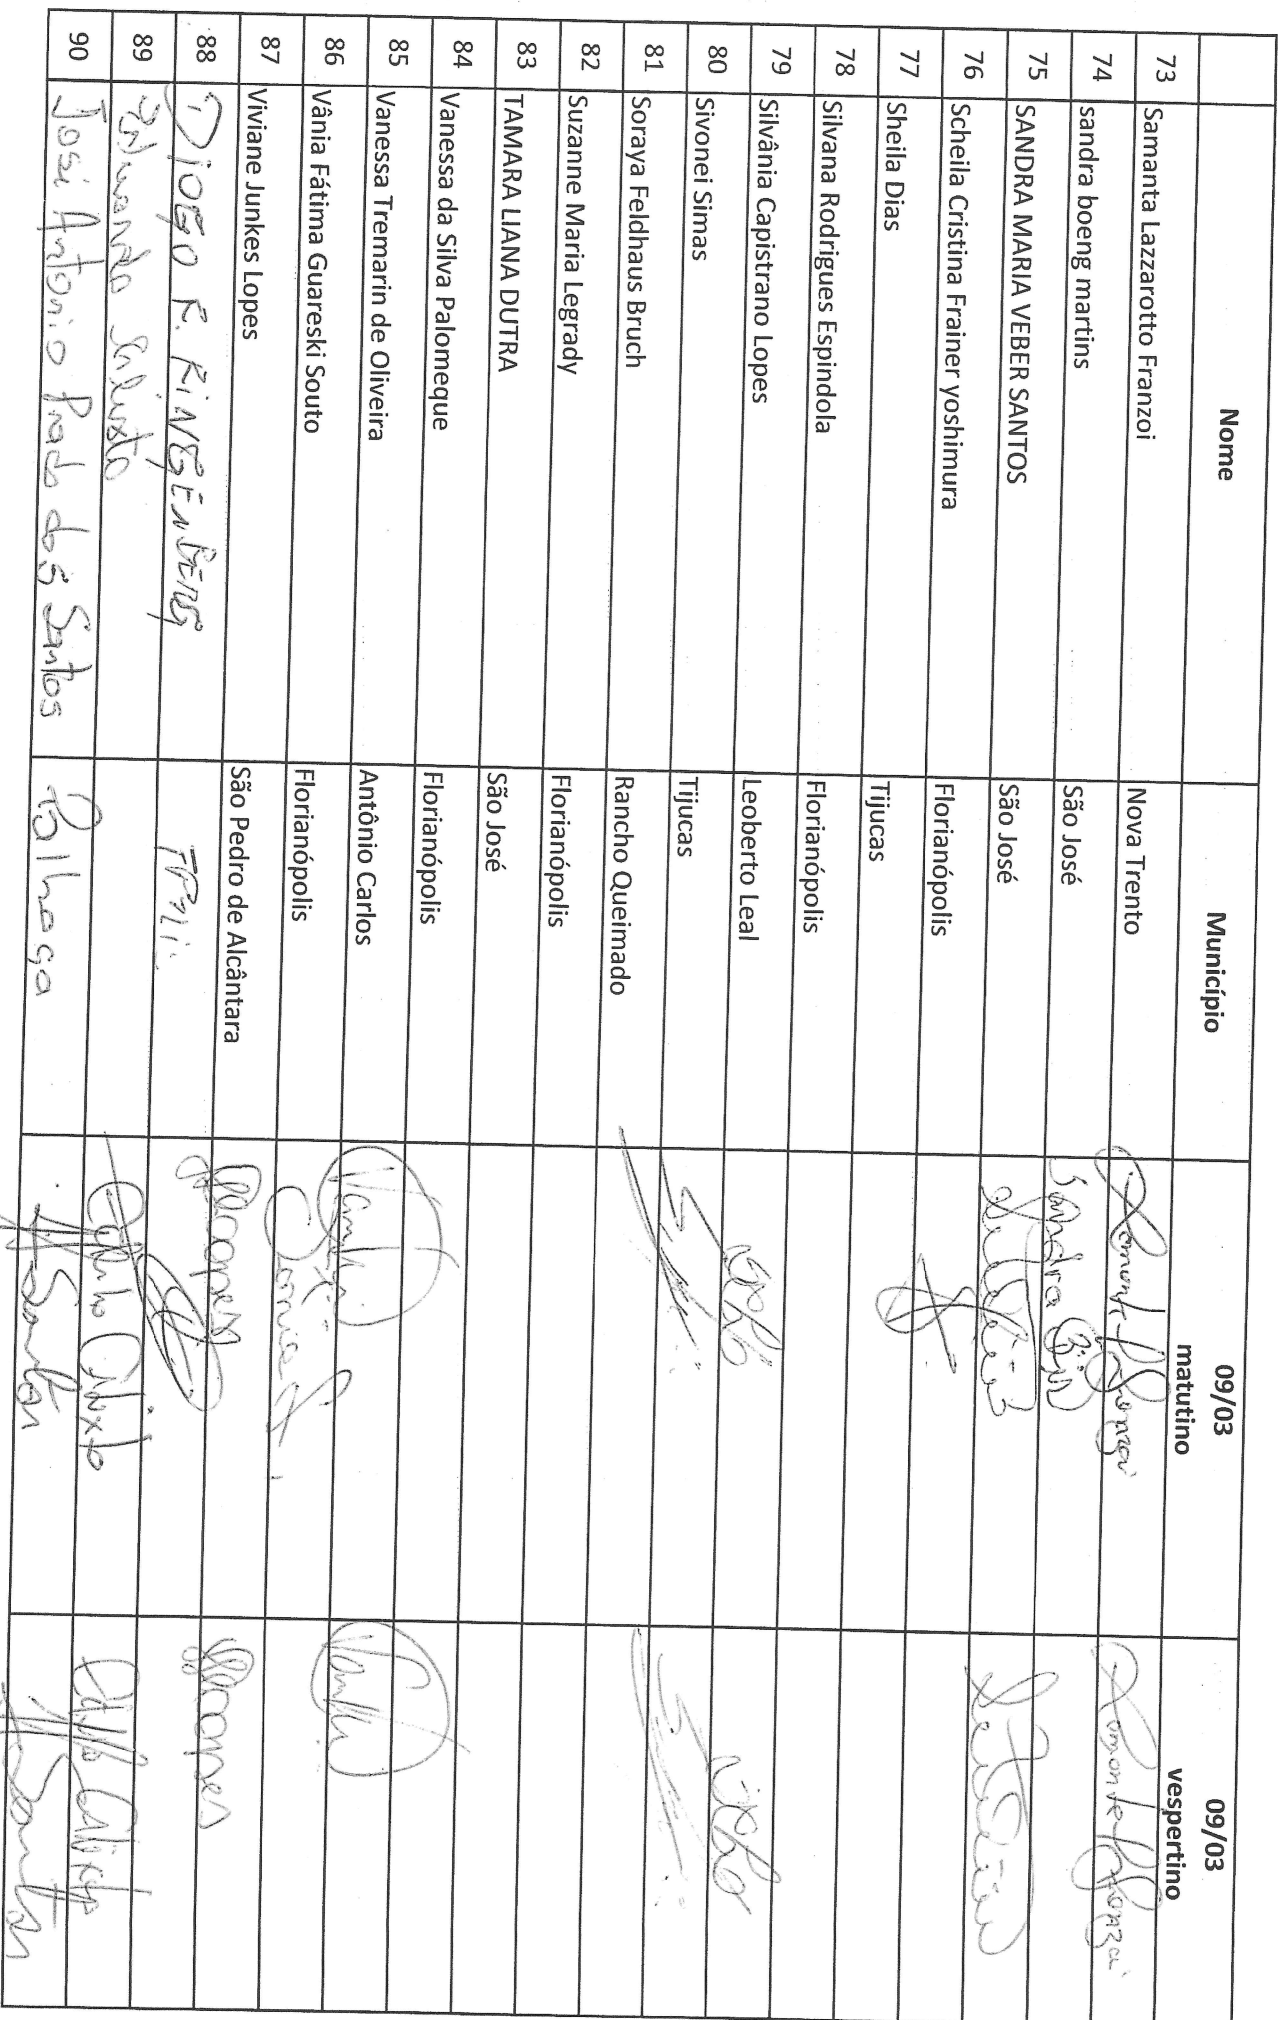 Nome Município 09/03 matutino 09/03 vespertino
73 Samanta Lazzarotto Franzoi Nova Trento
74 sandra boeng martins São José
75 SANDRA MARIA VEBER SANTOS São José
76 Scheila Cristina Frainer yoshimura Florianópolis
77 Sheila Dias Tijucas
78 Silvana Rodrigues Espindola Florianópolis
79 Silvânia Capistrano Lopes Leoberto Leal
80 Sivonei Simas Tijucas
81 Soraya Feldhaus Bruch Rancho Queimado
82 Suzanne Maria Legrady Florianópolis
83 TAMARA LIANA DUTRA São José
84 Vanessa da Silva Palomeque Florianópolis
85 Vanessa Tremarin de Oliveira Antônio Carlos
86 Vânia Fátima Guareski Souto Florianópolis
87 Viviane Junkes Lopes São Pedro de Alcântara
88 Diogo R. RINGENBERG
89
90 José Antonio Prado dos Santos Palhoça